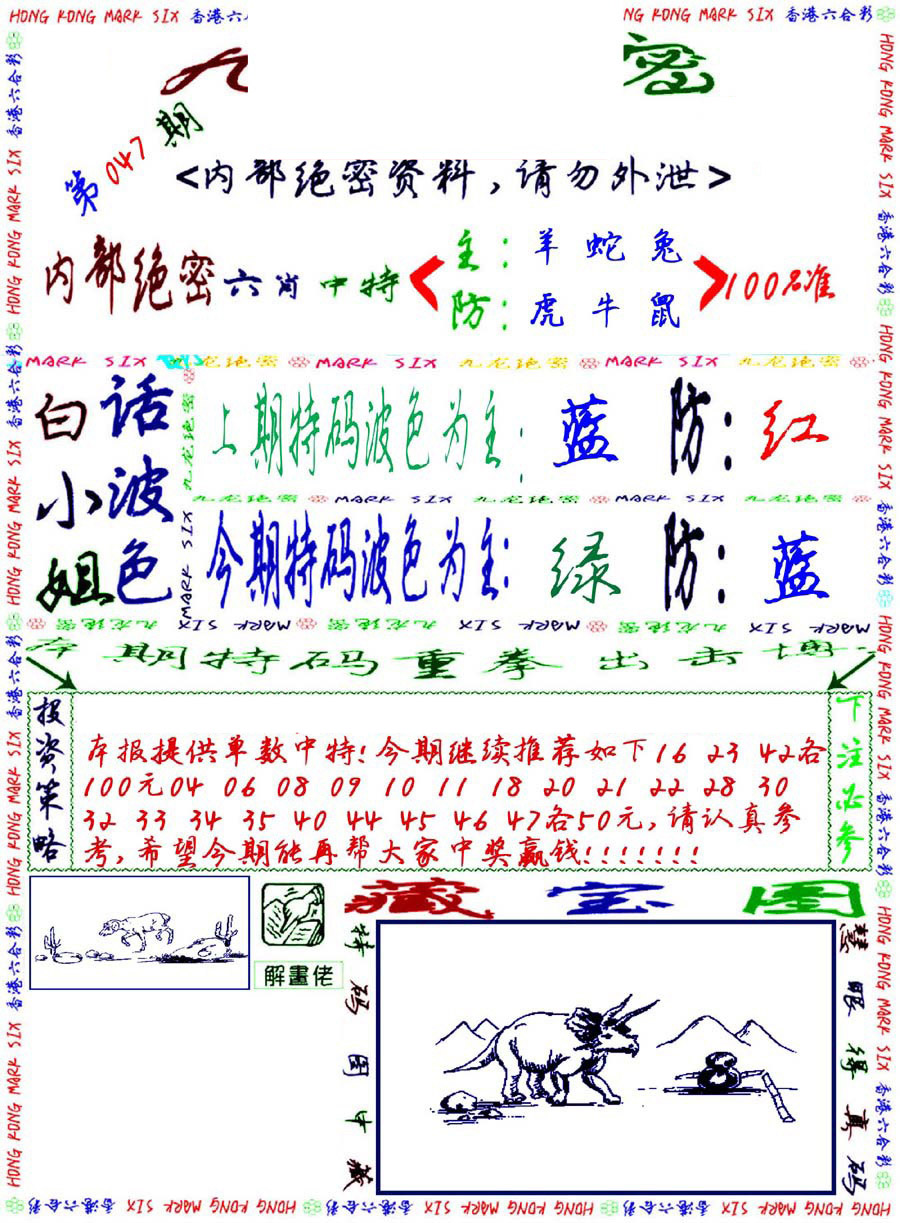 HONG KONG MARK SIX 香港六
NG KONG MARK SIX 香港六合彩
九 密
第047期
<内部绝密资料,请勿外泄>
内部绝密六肖中特
主: 羊 蛇 兔
防: 虎 牛 鼠
100%准
MARK SIX 九龙绝密 MARK SIX 九龙绝密 MARK SIX 九龙绝密
白小姐
话波色
上期特码波色为主: 蓝 防: 红
九龙绝密 MARK SIX 九龙绝密 MARK SIX 九龙绝密
今期特码波色为主: 绿 防: 蓝
MARK SIX 九龙绝密 MARK SIX 九龙绝密 MARK SIX 九龙绝密
期特码重拳出击
投资策略
本报提供单数中特!今期继续推荐如下16 23 42各
100元04 06 08 09 10 11 18 20 21 22 28 30
32 33 34 35 40 44 45 46 47各50元,请认真参
考,希望今期能再帮大家中奖赢钱!!!!!!!
下注必参
解畫佬
藏宝图
特码图中藏
慧眼得真码
HONG KONG MARK SIX 香港六合彩